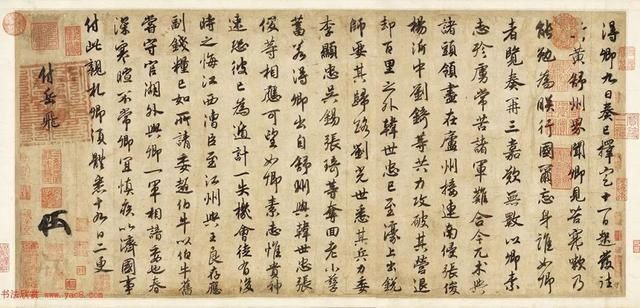 得卿九日奏已擇定十一日起發往
蘄黃舒州界聞卿見苦寒嗽乃
能勉為朕行國爾忘身誰如卿
者覽奏再三嘉歎無斁以卿素
志殄虜常苦諸軍難合今兀朮與
諸頭領盡在廬州接連南侵張俊
楊沂中劉錡等共力攻破其營退
却百里之外韓世忠已至濠上出銳
師要其歸路劉光世悉其兵力委
李顯忠吳錫張琦等奪回老小孳
畜若得卿出自舒州與韓世忠張
俊等相應可望如卿素志惟貴神
速恐彼已為遁計一失機會徒有後
時之悔江西漕臣至江州與王良存應
副錢糧已如所請委趙伯牛以伯牛舊
嘗守官湖外與卿一軍相諳委也春
深寒暄不常卿宜慎疾以濟國事
付此親札卿須體悉十九日二更
付岳飛
书法欣赏
www.yac8.com